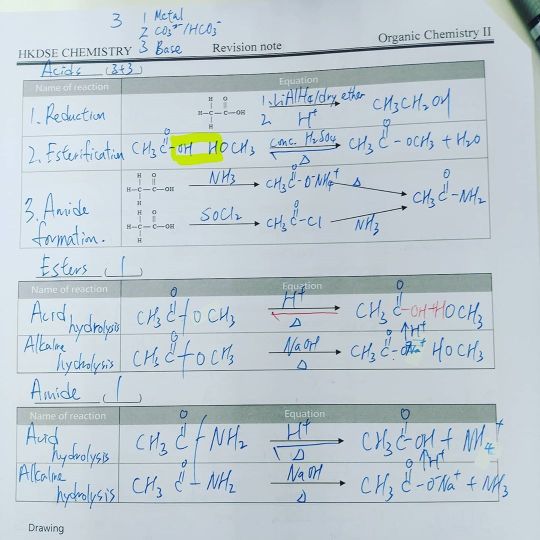 3 1 Metal
2 CO3²⁻/HCO3⁻
3 Base
HKDSE CHEMISTRY Revision note Organic Chemistry II
Acids (3+3)
Name of reaction Equation
1. Reduction H-C-C-OH 1. LiAlH4/dry ether 2. H⁺ CH3CH2OH
2. Esterification CH3C(=O)-OH HOCH3 conc. H2SO4 Δ CH3C(=O)-OCH3 + H2O
3. Amide formation. H-C-C-OH NH3 CH3C(=O)-O⁻NH4⁺ Δ CH3C(=O)-NH2
H-C-C-OH SOCl2 CH3C(=O)-Cl NH3
Esters ( )
Name of reaction Equation
Acid hydrolysis CH3C(=O)-OCH3 H⁺ Δ CH3C(=O)-OH HOCH3
Alkaline hydrolysis CH3C(=O)-OCH3 NaOH Δ CH3C(=O)-O⁻Na⁺ HOCH3
H⁺
Amide ( )
Name of reaction Equation
Acid hydrolysis CH3C(=O)-NH2 H⁺ Δ CH3C(=O)-OH + NH4⁺
H⁺
Alkaline hydrolysis CH3C(=O)-NH2 NaOH Δ CH3C(=O)-O⁻Na⁺ + NH3
Drawing